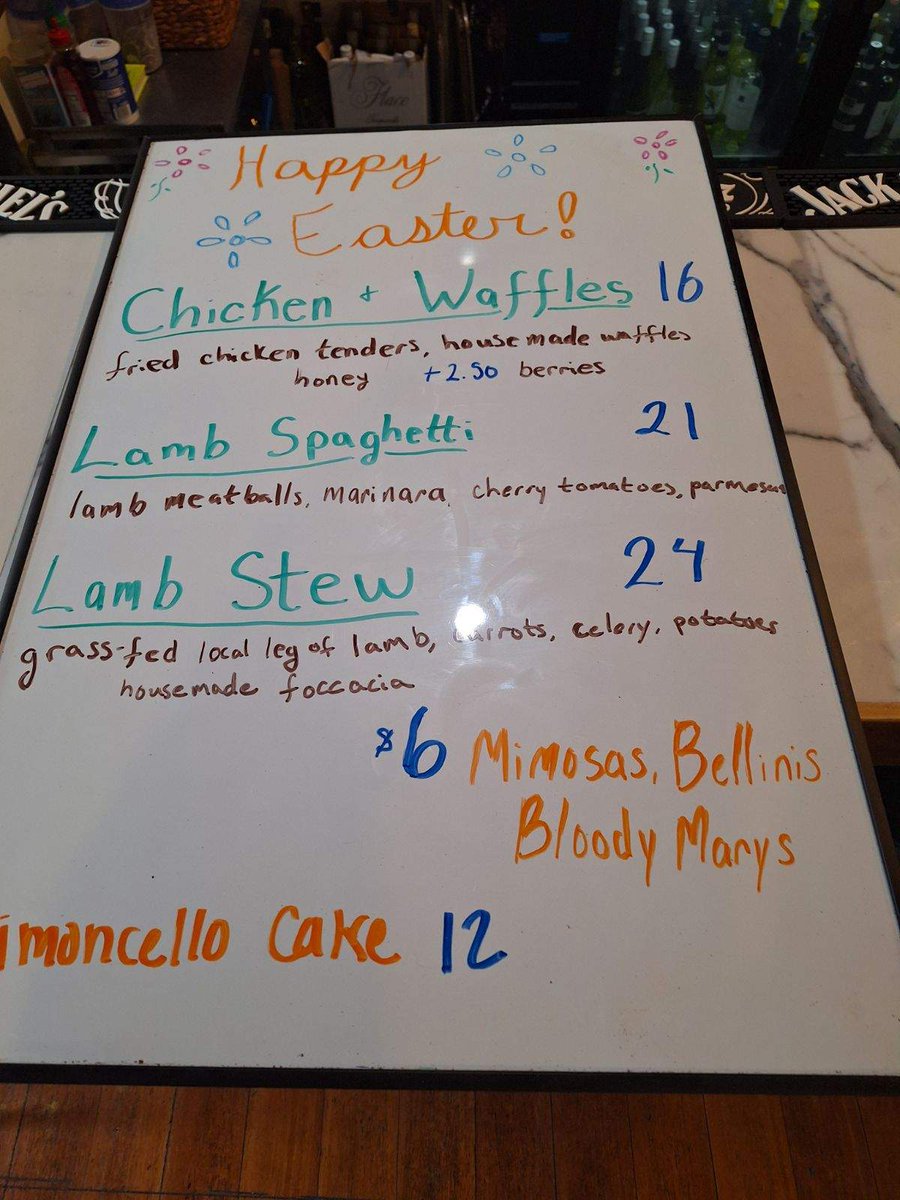 Happy
Easter!
Chicken + Waffles 16
fried chicken tenders, housemade waffles
honey +2.50 berries
Lamb Spaghetti 21
lamb meatballs, marinara, cherry tomatoes, parmesan
Lamb Stew 24
grass-fed local leg of lamb, carrots, celery, potatoes
housemade foccacia
$6 Mimosas, Bellinis
Bloody Marys
imoncello Cake 12
JACK